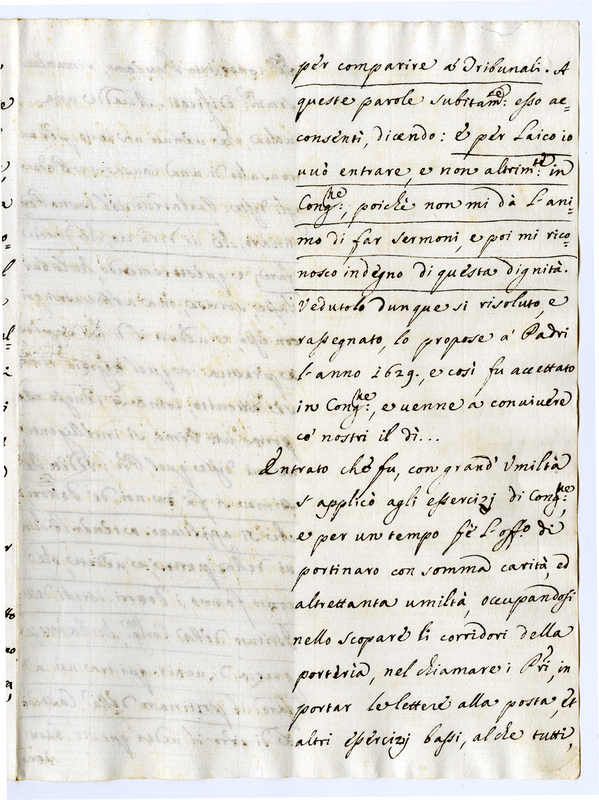 per comparire a' Tribunali. A
queste parole subitam:te esso ac=
consentì, dicendo: è per Laico io
vuò entrare, e non altrim:te in
Cong:ne, poichè non mi dà l'ani=
mo di far sermoni, e poi mi rico=
nosco indegno di questa dignità.
Vedutolo dunque sì risoluto, e
rassegnato, lo propose a' Padri
l'anno 1629., e così fu accettato
in Cong:ne, e venne a convivere
co' nostri il dì...
Entrato che fu, con grand' umiltà
s'applicò agli essercizj di Cong:ne,
e per un tempo fè l'off.o di
portinaro con somma carità, ed
altrettanta umiltà, occupandosi
nello scopare li corridori della
porteria, nel chiamare i P.ri, in
portar le lettere alla posta, et
altri essercizj bassi, al che tutti,